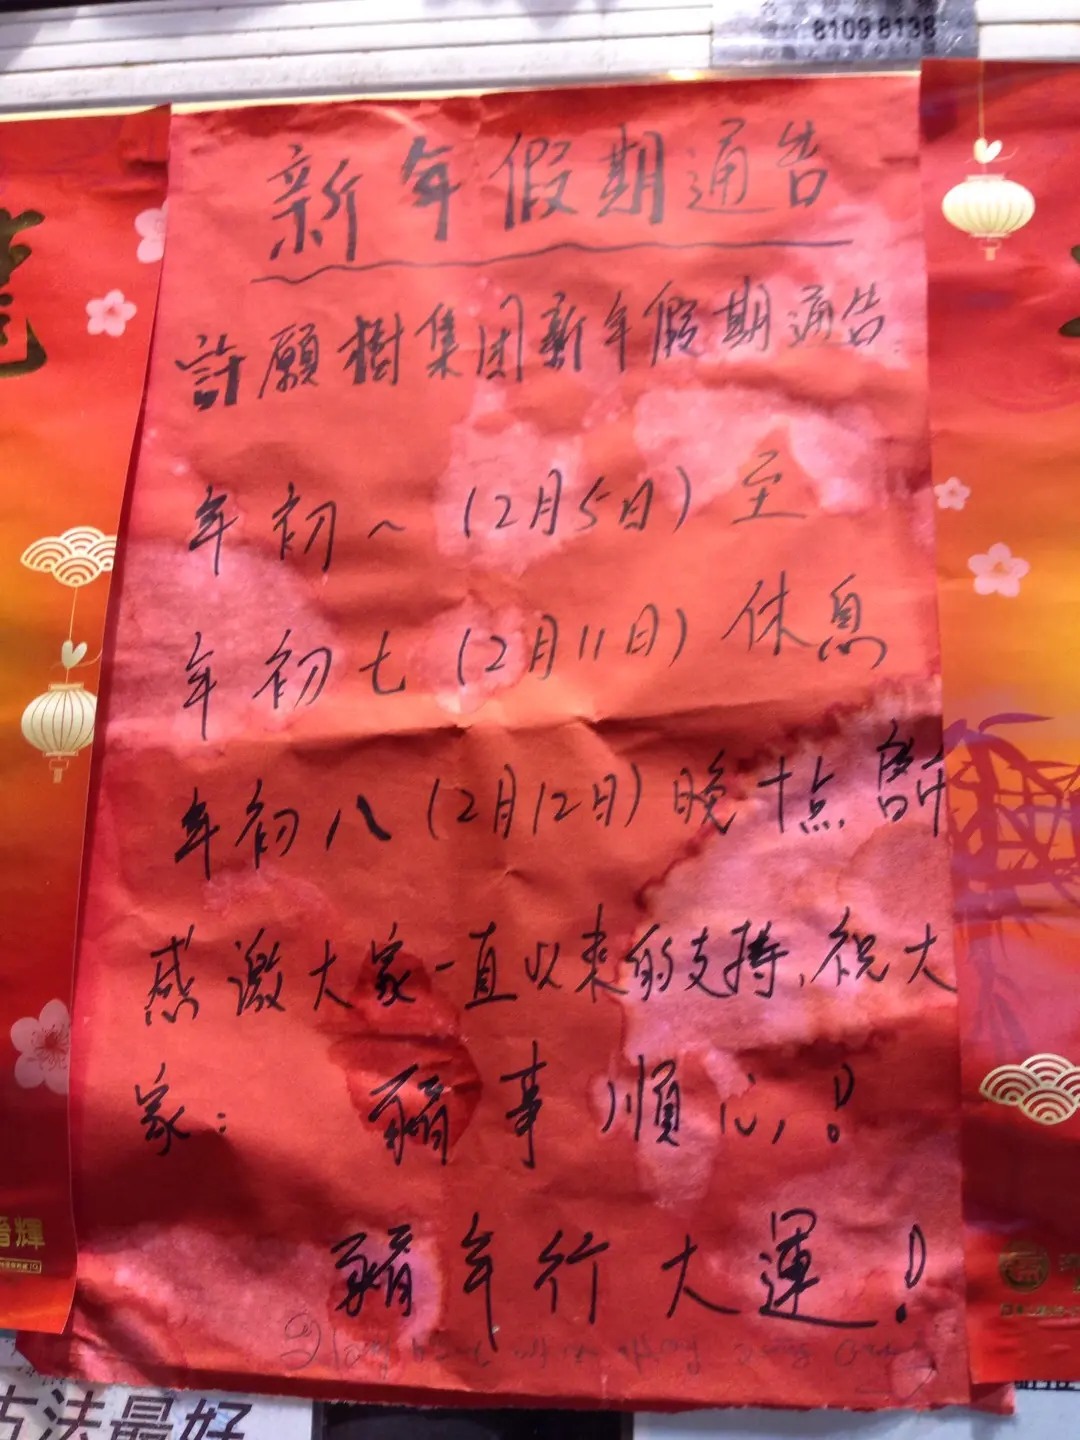 8109 8138
新年假期通告
許願樹集团新年假期通告
年初一(2月5日)至
年初七(2月11日)休息
年初八(2月12日)晚十点啓市
感激大家一直以来的支持、祝大
家: 豬事順心!
豬年行大運!
輝
古法最好